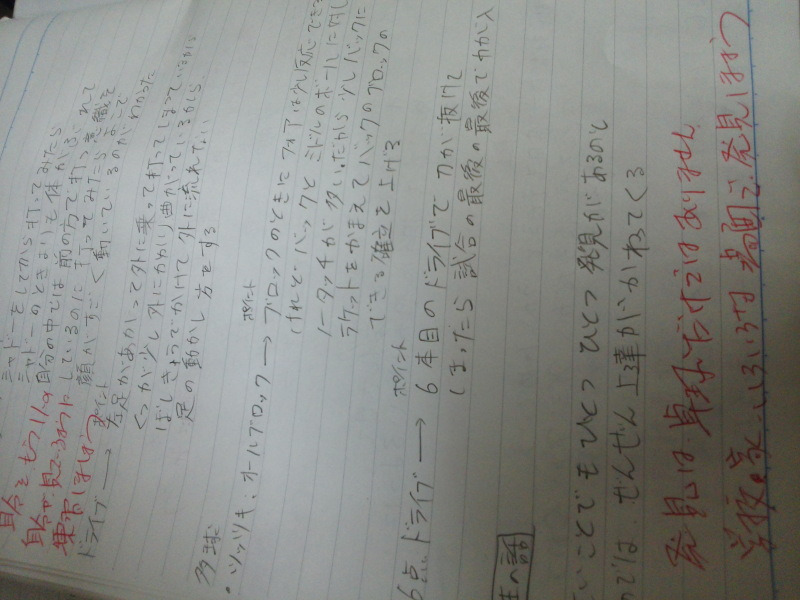 シャドーをしてから打ってみたら
シャドーのときよりも体が
自分の中では前の方で打
しているのに打ってみたら意識を
顔がすごく動いているのが
自分をもう1人の
自分が見ているように
練習しよう
ポイント
ドライブ → 左足があがって外に乗って打ってしまっているから
くつが少し外にかたより曲がっているから
足の動かし方をする
多球
・ツッツキ、オールブロック → ブロックのときにフォアは少し反応できる
ポイント
けれど、バックとミドルのボールに対し
ノータッチが多い。だから少しバックに
ラケットをかまえてバックのブロックの
できる確立を上げる
ポイント
6点 ドライブ → 6本目のドライブで力が抜けて
しまったら試合の最後の最後で力が入
の話
いことでもひとつひとつ発見があるのと
のでは、ぜんぜん上達がかわってくる
発見は卓球だけではありません
学校、家、いろいろな場面で発見しよう